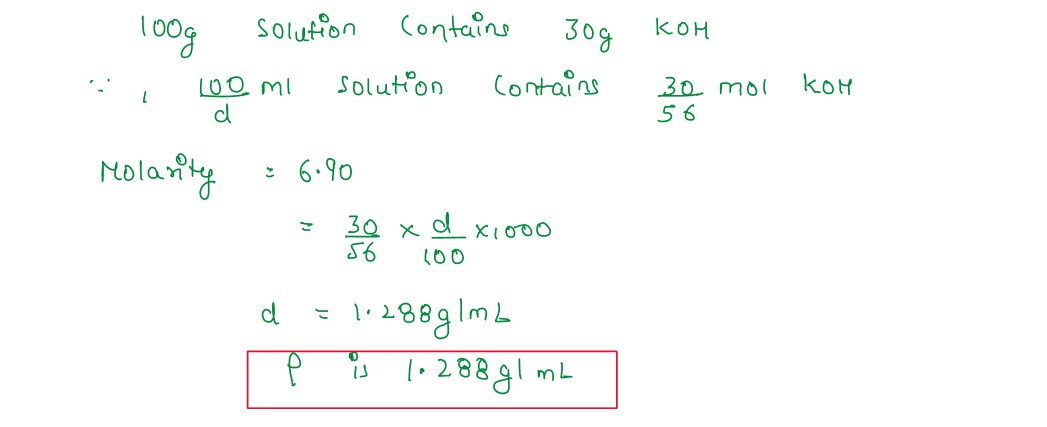 100g solution contains 30g KOH
∵, 100/d ml solution contains 30/56 mol KOH
Molarity = 6.90
= 30/56 × d/100 ×1000
d = 1.288g/mL
ρ is 1.288g/mL